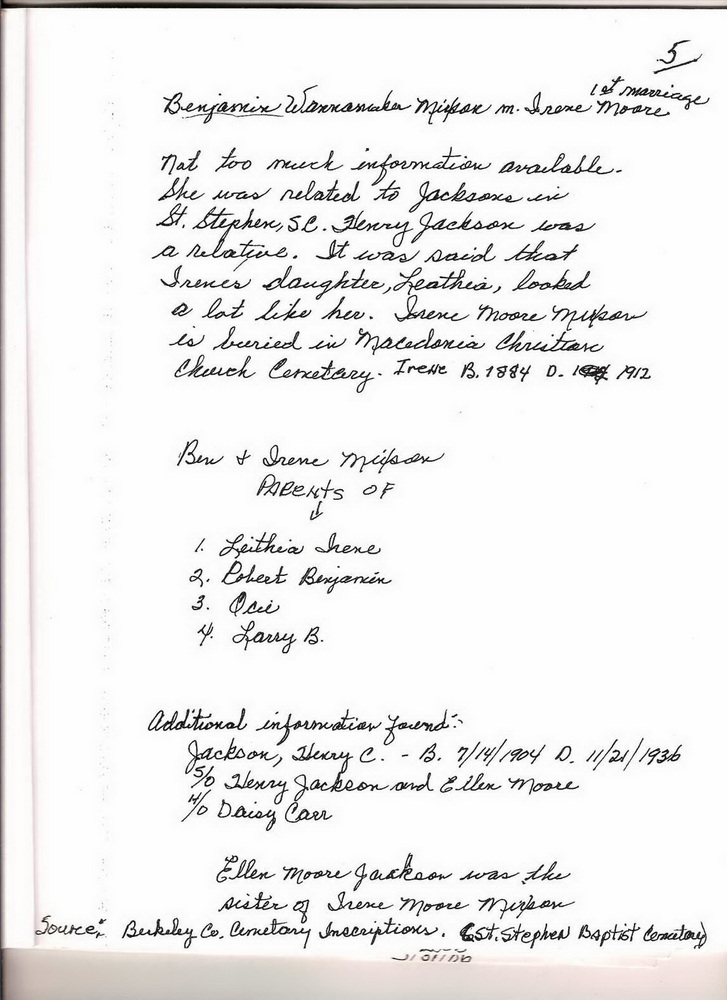 5
1st marriage
Benjamin Wannamaker Mixson m. Irene Moore
Not too much information available.
She was related to Jacksons in
St. Stephen, SC. Henry Jackson was
a relative. It was said that
Irene's daughter, Leathia, looked
a lot like her. Irene Moore Mixson
is buried in Macedonia Christian
Church Cemetary. Irene B. 1884 D. 1912
Ben & Irene Mixson
PARENTS OF
↓
1. Leithia Irene
2. Robert Benjamin
3. Ocie
4. Larry B.
Additional information found:
Jackson, Henry C. - B. 7/14/1904 D. 11/21/1936
S/O Henry Jackson and Ellen Moore
H/O Daisy Carr
Ellen Moore Jackson was the
sister of Irene Moore Mixson
Source: Berkeley Co. Cemetary Inscriptions. (St. Stephen Baptist Cemetary)